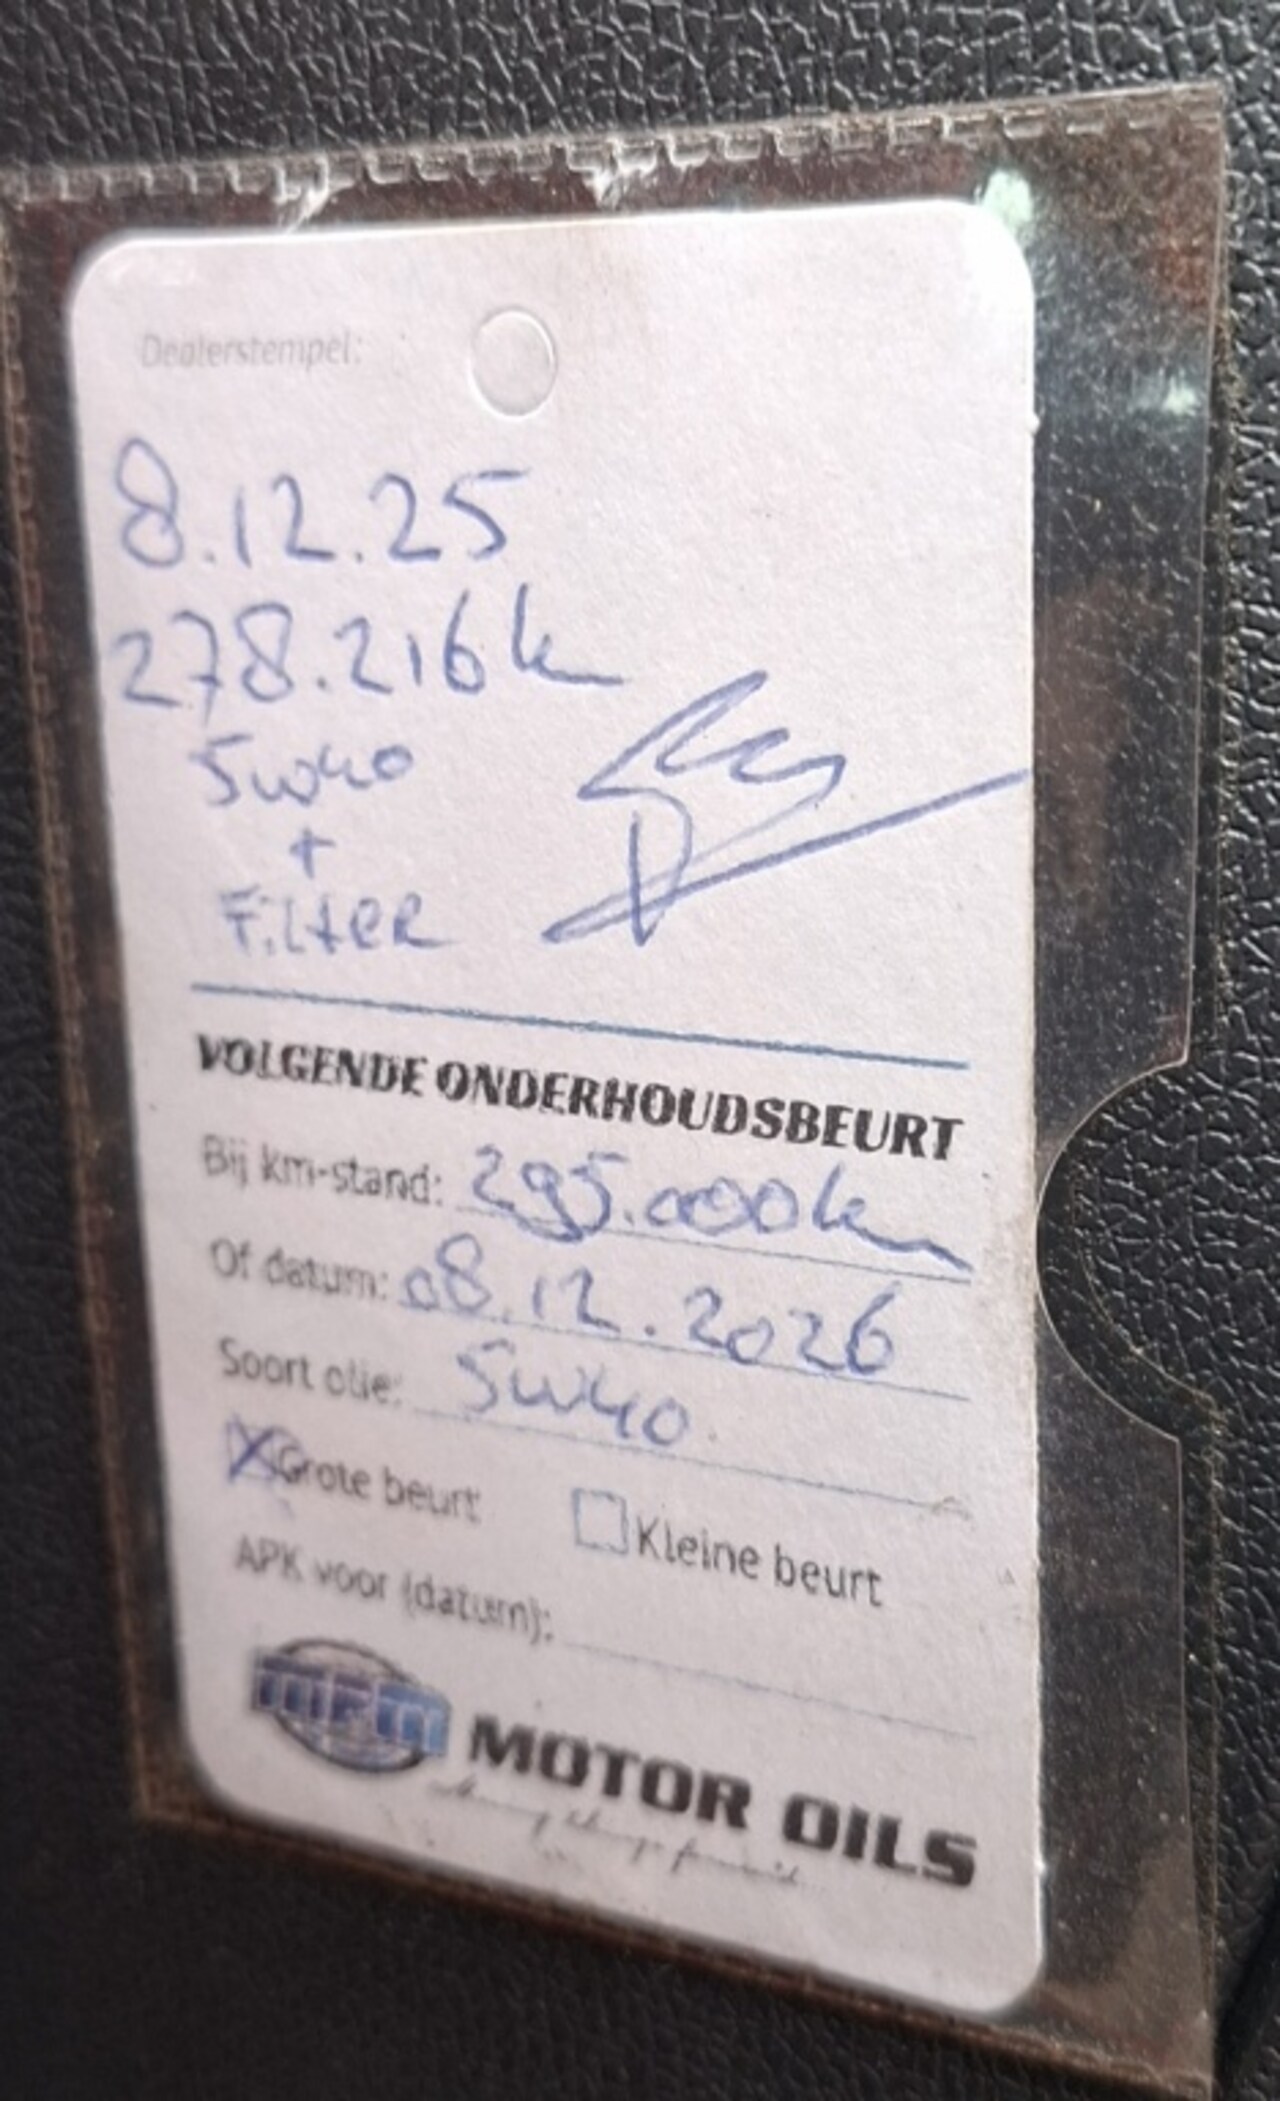 Dealerstempel:
8.12.25
278.216k
5w40
+
FiLteR
VOLGENDE ONDERHOUDSBEURT
Bij km-stand: 295.000km
Of datum: 08.12.2026
Soort olie: 5w40
Grote beurt Kleine beurt
APK voor (datum):
MPM MOTOR OILS